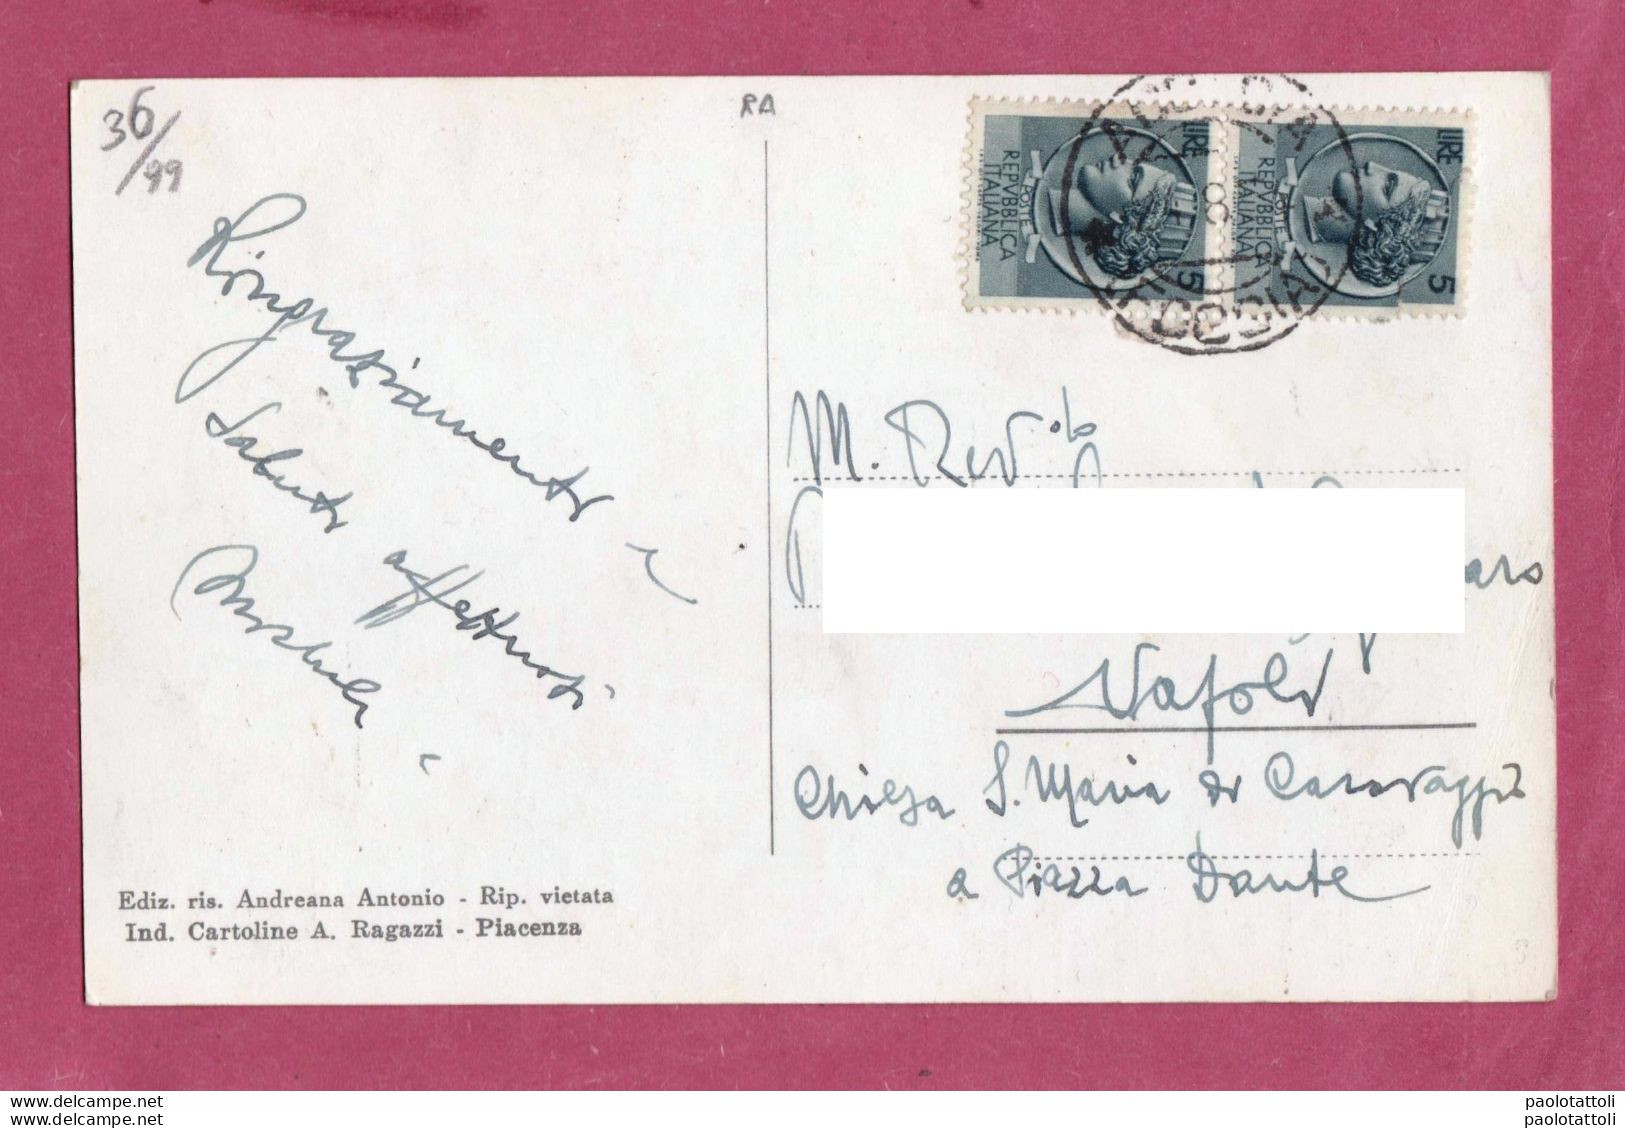 36/99
RA
LIRE 5
REPVBBLICA ITALIANA
POSTE
LIRE 5
REPVBBLICA ITALIANA
POSTE
Ringraziamenti e
Saluti affettuosi
M. Rev.do
Napoli
Chiesa S. Maria di Caravaggio
a Piazza Dante
Ediz. ris. Andreana Antonio - Rip. vietata
Ind. Cartoline A. Ragazzi - Piacenza
paolotattoli
paolotattoli
paolotattoli
paolotattoli